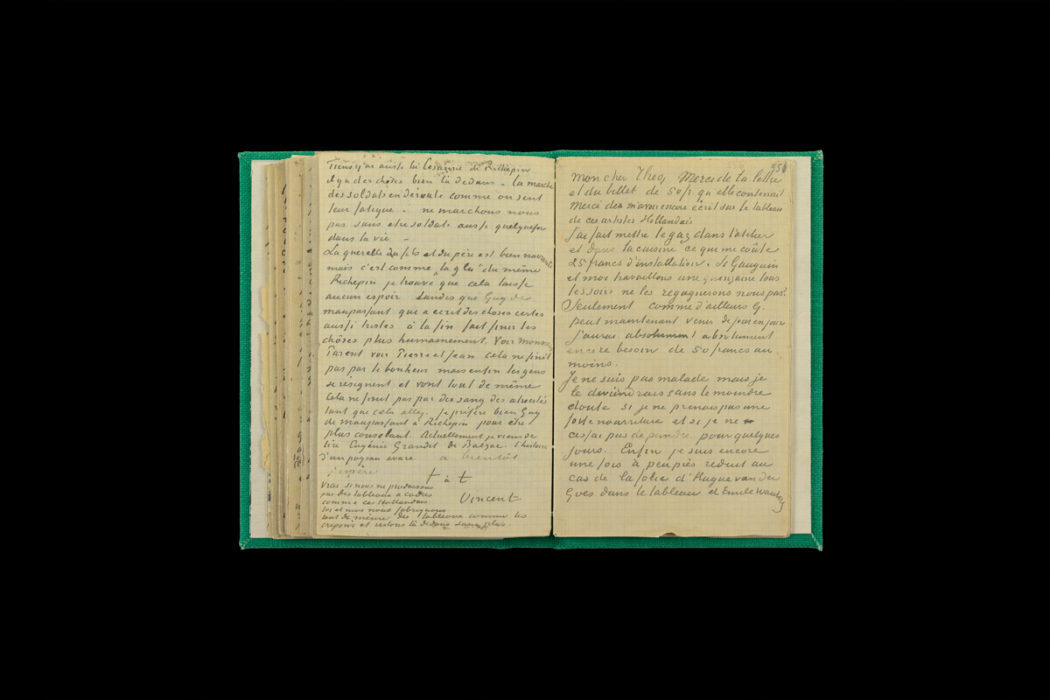 Tiens j'ai aussi lu Césarine de Richepin
il y a des choses bien là dedans – la marche
des soldats en déroute comme on sent
leur fatigue – ne marchons nous
pas sans etre soldats aussi quelquefois
dans la vie –
La querelle du fils et du père est bien navrante
mais c'est comme „la glu” du même
Richepin je trouve que cela laisse
aucun espoir tandis que Guy de
maupassant qui a ecrit des choses certes
aussi tristes à la fin fait finir les
choses plus humainement. Voir monsieur
Parent voir Pierre et Jean cela ne finit
pas par le bonheur mais enfin les gens
se résignent et vont tout de même
cela ne finit pas par du sang des atrocités
tant que cela allez. je préfère bien Guy
de maupassant à Richepin pour etre
plus consolant. Actuellement je viens de
lire Eugénie Grandet de Balzac l'histoire
d'un paysan avare a bientôt
j'espère
t à t
Vincent
Vrai si nous ne produisons
pas des tableaux à cadres
comme ces Hollandais
toi et moi nous fabriquons
tout de même des tableaux comme les
crepons et restons là dedans sans plus.
558
Mon cher Theo, Merci de ta lettre
et du billet de 50 fr. qu'elle contenait
Merci de m'avoir encore écrit sur le tableau
de ces artistes Hollandais
J'ai fait mettre le gaz dans l'atelier
et dans la cuisine ce que me coûte
25 francs d'installation. Si Gauguin
et moi travaillons une quinzaine tous
les soirs ne les regagnerons nous pas?
Seulement comme d'ailleurs G.
peut maintenant venir de jour en jour
j'aurai absolument absolument
encore besoin de 50 francs au
moins.
Je ne suis pas malade mais je
le deviendrais sans le moindre
doute si je ne prenais pas une
forte nourriture et si je ne
cessai pas de peindre pour quelques
jours. Enfin je suis encore
une fois à peu près reduit au
cas de la folie d'Hugue van der
Goes dans le tableau d'Emile Wauters